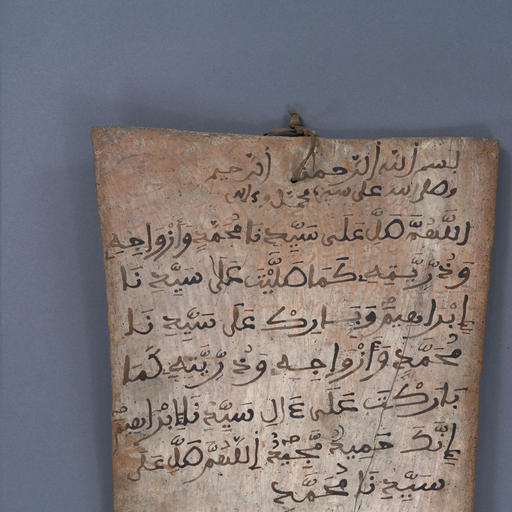 بسم الله الرحمن الرحيم
وصلى الله على سيدنا محمد وءاله
اللَّهُمَّ صَلِّ عَلَى سَيِّدِنَا مُحَمَّدٍ وَأَزْوَاجِهِ
وَذُرِّيَّتِهِ كَمَا صَلَّيْتَ عَلَى سَيِّدِنَا
إِبْرَاهِيمَ وَبَارِكْ عَلَى سَيِّدِنَا
مُحَمَّدٍ وَأَزْوَاجِهِ وَذُرِّيَّتِهِ كَمَا
بَارَكْتَ عَلَى ءَالِ سَيِّدِنَا إِبْرَاهِيمَ
إِنَّكَ حَمِيدٌ مَّجِيدٌ اللَّهُمَّ صَلِّ عَلَى
سَيِّدِنَا مُحَمَّدٍ